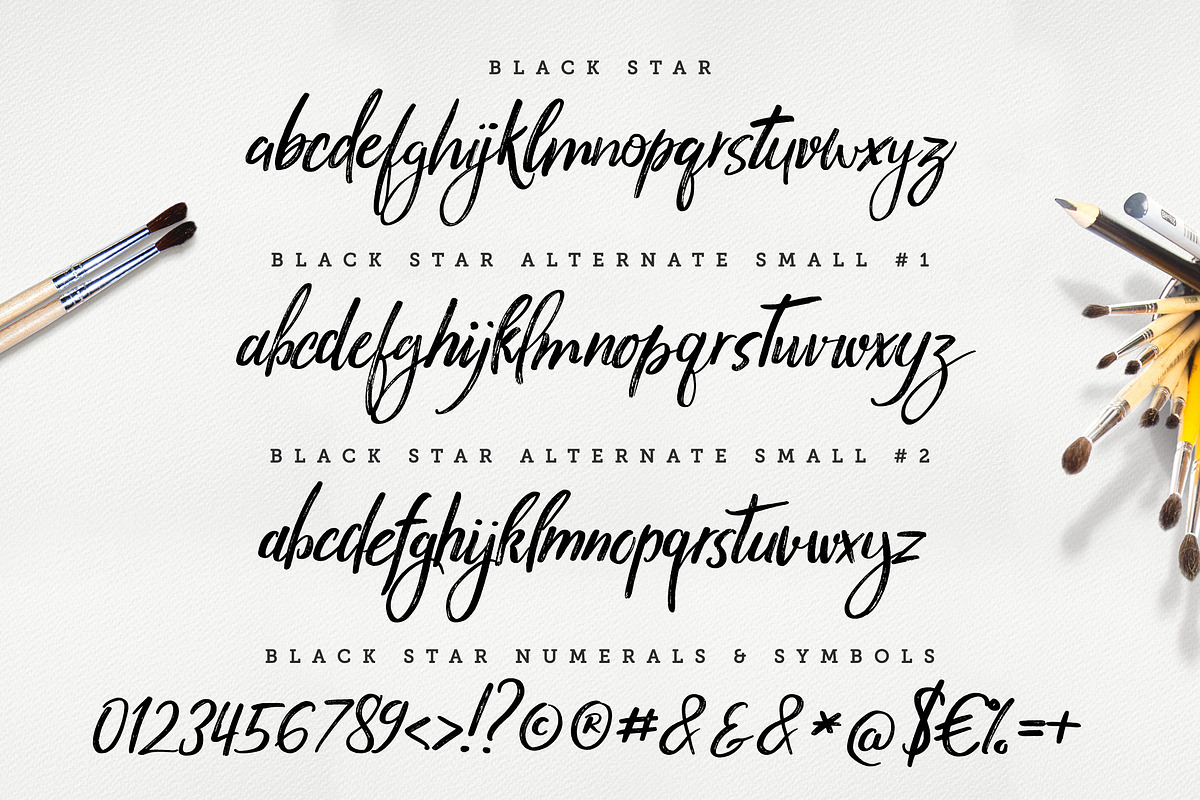 BLACK STAR
abcdefghijklmnopqrstuvwxyz
BLACK STAR ALTERNATE SMALL #1
abcdefghijklmnopqrstuvwxyz
BLACK STAR ALTERNATE SMALL #2
abcdefghijklmnopqrstuvwxyz
BLACK STAR NUMERALS & SYMBOLS
0123456789<>!?©®#&&&*@$€%=+